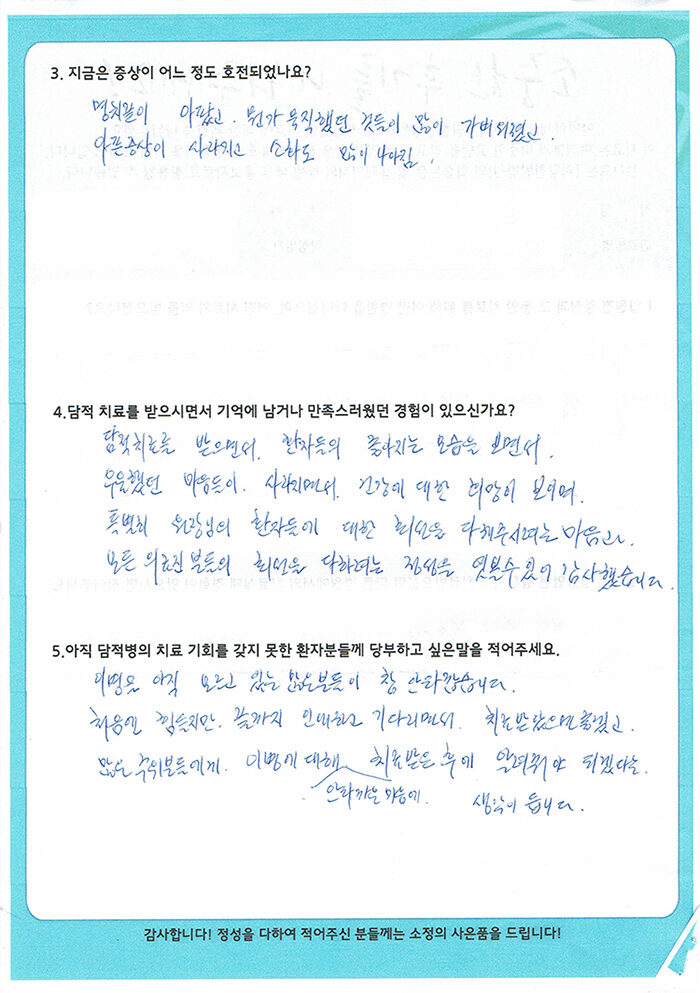 3. 지금은 증상이 어느 정도 호전되었나요?
명치끝이 아팠고. 뭔가 묵직했던 것들이 많이 가벼워졌고.
아픈증상이 사라지고 소화도 많이 나아짐.
4.담적 치료를 받으시면서 기억에 남거나 만족스러웠던 경험이 있으신가요?
담적치료를 받으면서. 환자들의 좋아지는 모습을 보면서.
우울했던 마음들이. 사라지면서. 건강에 대한 희망이 보이며.
특별히 원장님의 환자들에 대한 최선을 다해주시려는 마음과.
모든 의료진분들의 최선을 다하려는 정성을 엿볼수 있어 감사했습니다.
5.아직 담적병의 치료 기회를 갖지 못한 환자분들께 당부하고 싶은말을 적어주세요.
이병을 아직 모르고 있는 많은분들이 참 안타깝습니다.
처음엔 힘들지만. 끝까지 인내하고 기다리면서. 치료받았으면 좋겠고.
많은 주위분들에게. 이병에 대해 치료받은 후에 알려줘야 되겠다는.
안타까운 마음에. 생각이 듭니다.
감사합니다! 정성을 다하여 적어주신 분들께는 소정의 사은품을 드립니다!